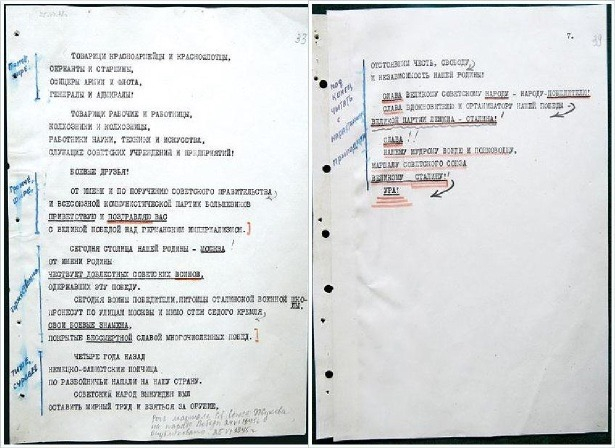 33
ТОВАРИЩИ КРАСНОАРМЕЙЦЫ И КРАСНОФЛОТЦЫ,
СЕРЖАНТЫ И СТАРШИНЫ,
ОФИЦЕРЫ АРМИИ И ФЛОТА,
ГЕНЕРАЛЫ И АДМИРАЛЫ!
ТОВАРИЩИ РАБОЧИЕ И РАБОТНИЦЫ,
КОЛХОЗНИКИ И КОЛХОЗНИЦЫ,
РАБОТНИКИ НАУКИ, ТЕХНИКИ И ИСКУССТВА,
СЛУЖАЩИЕ СОВЕТСКИХ УЧРЕЖДЕНИЙ И ПРЕДПРИЯТИЙ!
БОЕВЫЕ ДРУЗЬЯ!
ОТ ИМЕНИ И ПО ПОРУЧЕНИЮ СОВЕТСКОГО ПРАВИТЕЛЬСТВА
И ВСЕСОЮЗНОЙ КОММУНИСТИЧЕСКОЙ ПАРТИИ БОЛЬШЕВИКОВ
ПРИВЕТСТВУЮ И ПОЗДРАВЛЯЮ ВАС
С ВЕЛИКОЙ ПОБЕДОЙ НАД ГЕРМАНСКИМ ИМПЕРИАЛИЗМОМ.
СЕГОДНЯ СТОЛИЦА НАШЕЙ РОДИНЫ - МОСКВА !
ОТ ИМЕНИ РОДИНЫ
ЧЕСТВУЕТ ДОБЛЕСТНЫХ СОВЕТСКИХ ВОИНОВ,
ОДЕРЖАВШИХ ЭТУ ПОБЕДУ.
СЕГОДНЯ ВОИНЫ ПОБЕДИТЕЛИ, ПИТОМЦЫ СТАЛИНСКОЙ ВОЕННОЙ ШКО-
ЛЫ,
ПРОНЕСУТ ПО УЛИЦАМ МОСКВЫ И МИМО СТЕН СЕДОГО КРЕМЛЯ
СВОИ БОЕВЫЕ ЗНАМЕНА,
ПОКРЫТЫЕ БЕССМЕРТНОЙ СЛАВОЙ МНОГОЧИСЛЕННЫХ ПОБЕД.
ЧЕТЫРЕ ГОДА НАЗАД
НЕМЕЦКО-ФАШИСТСКИЕ ПОЛЧИЩА
ПО РАЗБОЙНИЧЬИ НАПАЛИ НА НАШУ СТРАНУ.
СОВЕТСКИЙ НАРОД ВЫНУЖДЕН БЫЛ
ОСТАВИТЬ МИРНЫЙ ТРУД И ВЗЯТЬСЯ ЗА ОРУЖИЕ,
7.
39
ОТСТОЯВШИМ ЧЕСТЬ, СВОБОДУ
И НЕЗАВИСИМОСТЬ НАШЕЙ РОДИНЫ!
СЛАВА ВЕЛИКОМУ СОВЕТСКОМУ НАРОДУ - НАРОДУ-ПОБЕДИТЕЛЮ!
СЛАВА ВДОХНОВИТЕЛЮ И ОРГАНИЗАТОРУ НАШЕЙ ПОБЕДЫ
ВЕЛИКОЙ ПАРТИИ ЛЕНИНА - СТАЛИНА!
СЛАВА !
НАШЕМУ МУДРОМУ ВОЖДЮ И ПОЛКОВОДЦУ,
МАРШАЛУ СОВЕТСКОГО СОЮЗА
ВЕЛИКОМУ СТАЛИНУ!
УРА!